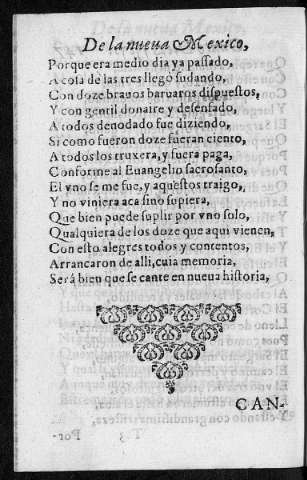 De la nueva Mexico,
Porque era medio dia ya passado,
A cosa de las tres llegò sudando,
Con doze brauos baruaros dispuestos,
Y con gentil donaire y desenfado,
A todos denodado fue diziendo,
Si como fueron doze fueran ciento,
A todos los truxera, y fuera paga,
Conforme al Euangelio sacrosanto,
El vno se me fue, y aquestos traigo,
Y no viniera aca sino supiera,
Que bien puede suplir por vno solo,
Qualquiera de los doze que aqui vienen,
Con esto alegres todos y contentos,
Arrancaron de alli, cuia memoria,
Será bien que se cante en nueua historia,
CAN-